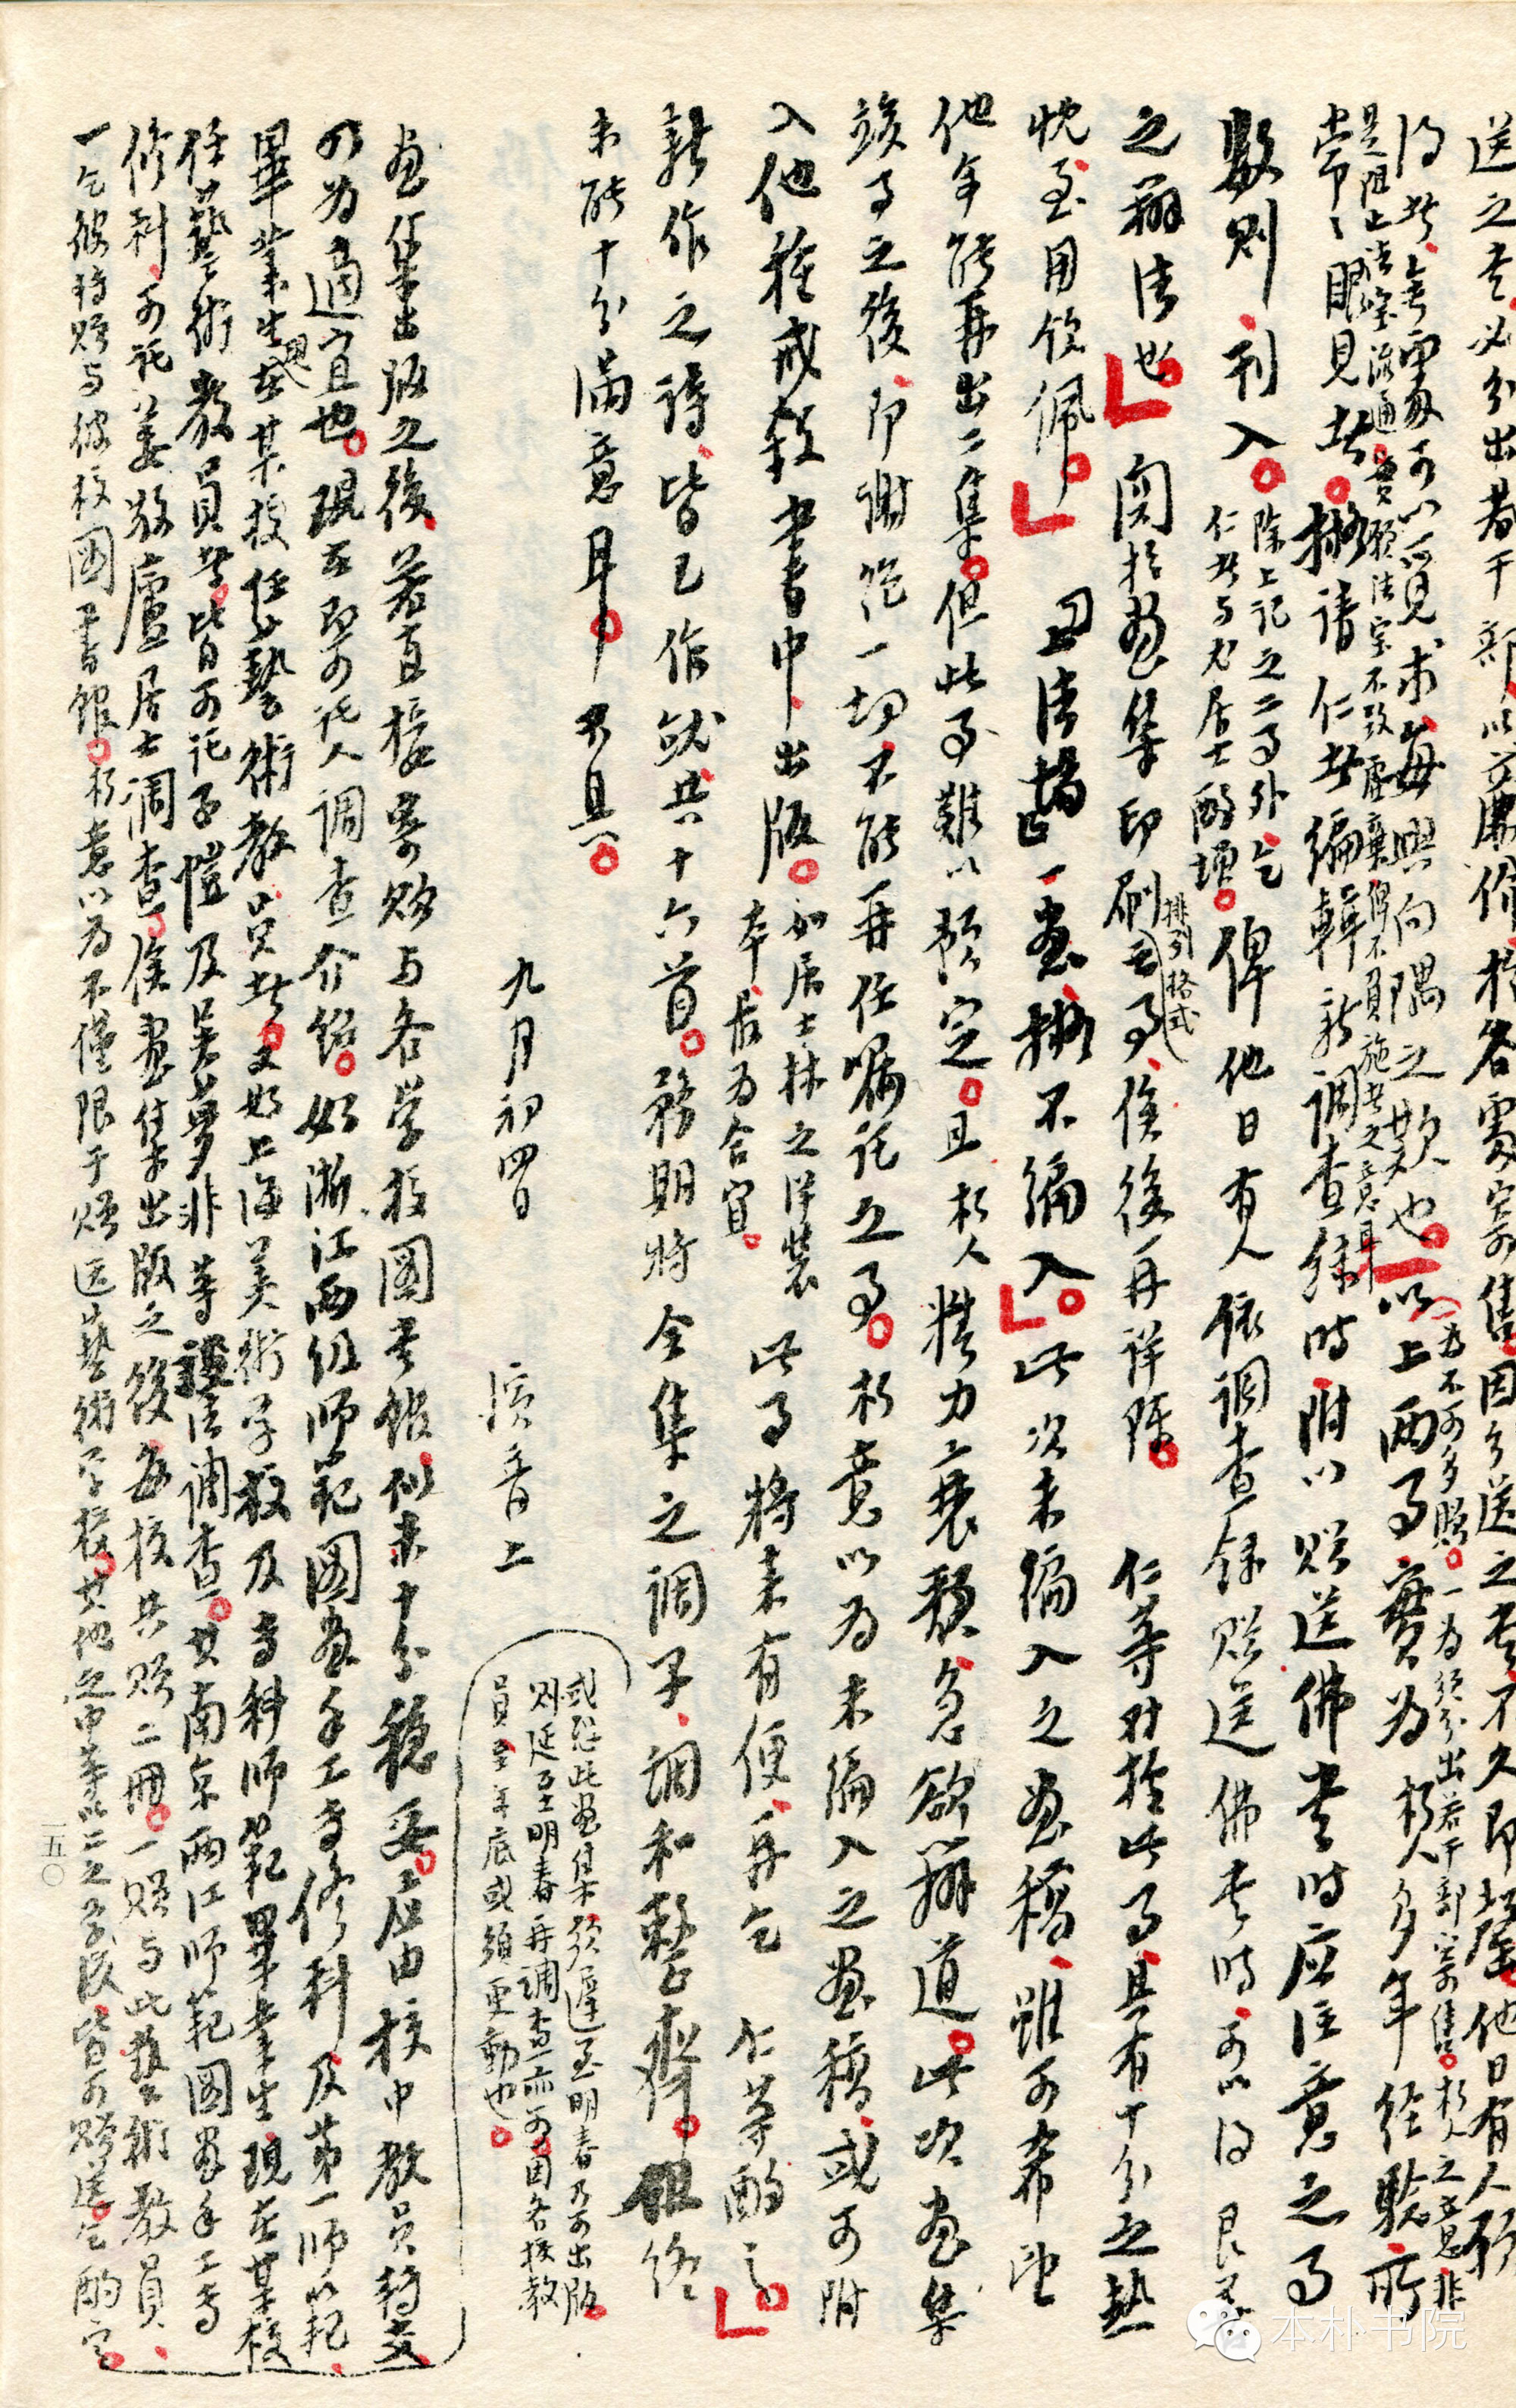 送之书、必分出若干部、以廉价于各处寄售。因分送之书、不久即罄。他日有人愿
得者、无处可以觅求、每兴向隅之叹也。以上两事、实为朽人多年经验所
(一为不可多赠。一为须分出若干部寄售。朽人之意、非
是阻止法宝流通。实愿法宝不致虚弃、俾不负施者之意耳
常常眼见者。拟请仁者编辑新调查录时、附以赠送佛书时应注意之事
数则、刊入。
除上记之二事外、乞
仁者与尤居士酌增。
俾他日有人依调查录赠送佛书时、可以得良善
之办法也。
关于画集印刷之事、俟后再详陈。
排列格式
仁等对于此事、具有十分之热
忱、至用钦佩。
画、拟不编入。此次未编入之画稿、虽可希望
他年能再出二集。但此事难以预定。且朽人精力衰颓、急欲办道。此次画集
竣事之后、即谢绝一切、不能再任嘱托之事。朽意以为未编入之画稿、或可附
入他种戒杀书中、出版。
如居士林之洋装
本、最为合宜。
此事将来有便、再乞仁等酌之。
新作之诗、皆已作就、共十六首。务期将全集之调子、调和整齐。但终
未能十分满意耳。不具。
九月初四日
演音上
或恐此画集、须迟至明春乃可出版、
则延至明春再调查亦可。因各校教
员、至年底或须更动也。
画集出版之后、若直接寄赠与各学校图书馆、似未十分稳妥。应由校中教员转交、
乃为适宜也。现在即可托人调查介绍。如浙江两级师范图画手工专修科及第一师范、
毕业生、现在某校任艺术教员者。又如上海美术学校及专科师范毕业生、现在某校
任艺术教员者。皆可托子恺及吴梦非等诸居士调查。其南京两江师范图画手工专
修科、可托姜敬庐居士调查。俟画集出版之后、每校共赠二册。一赠与此艺术教员、
一乞彼转赠与彼校图书馆。朽意以为不仅限于赠送艺术学校。其他之中等以上之学校、皆可赠送。乞酌定。
一五〇
本朴书院